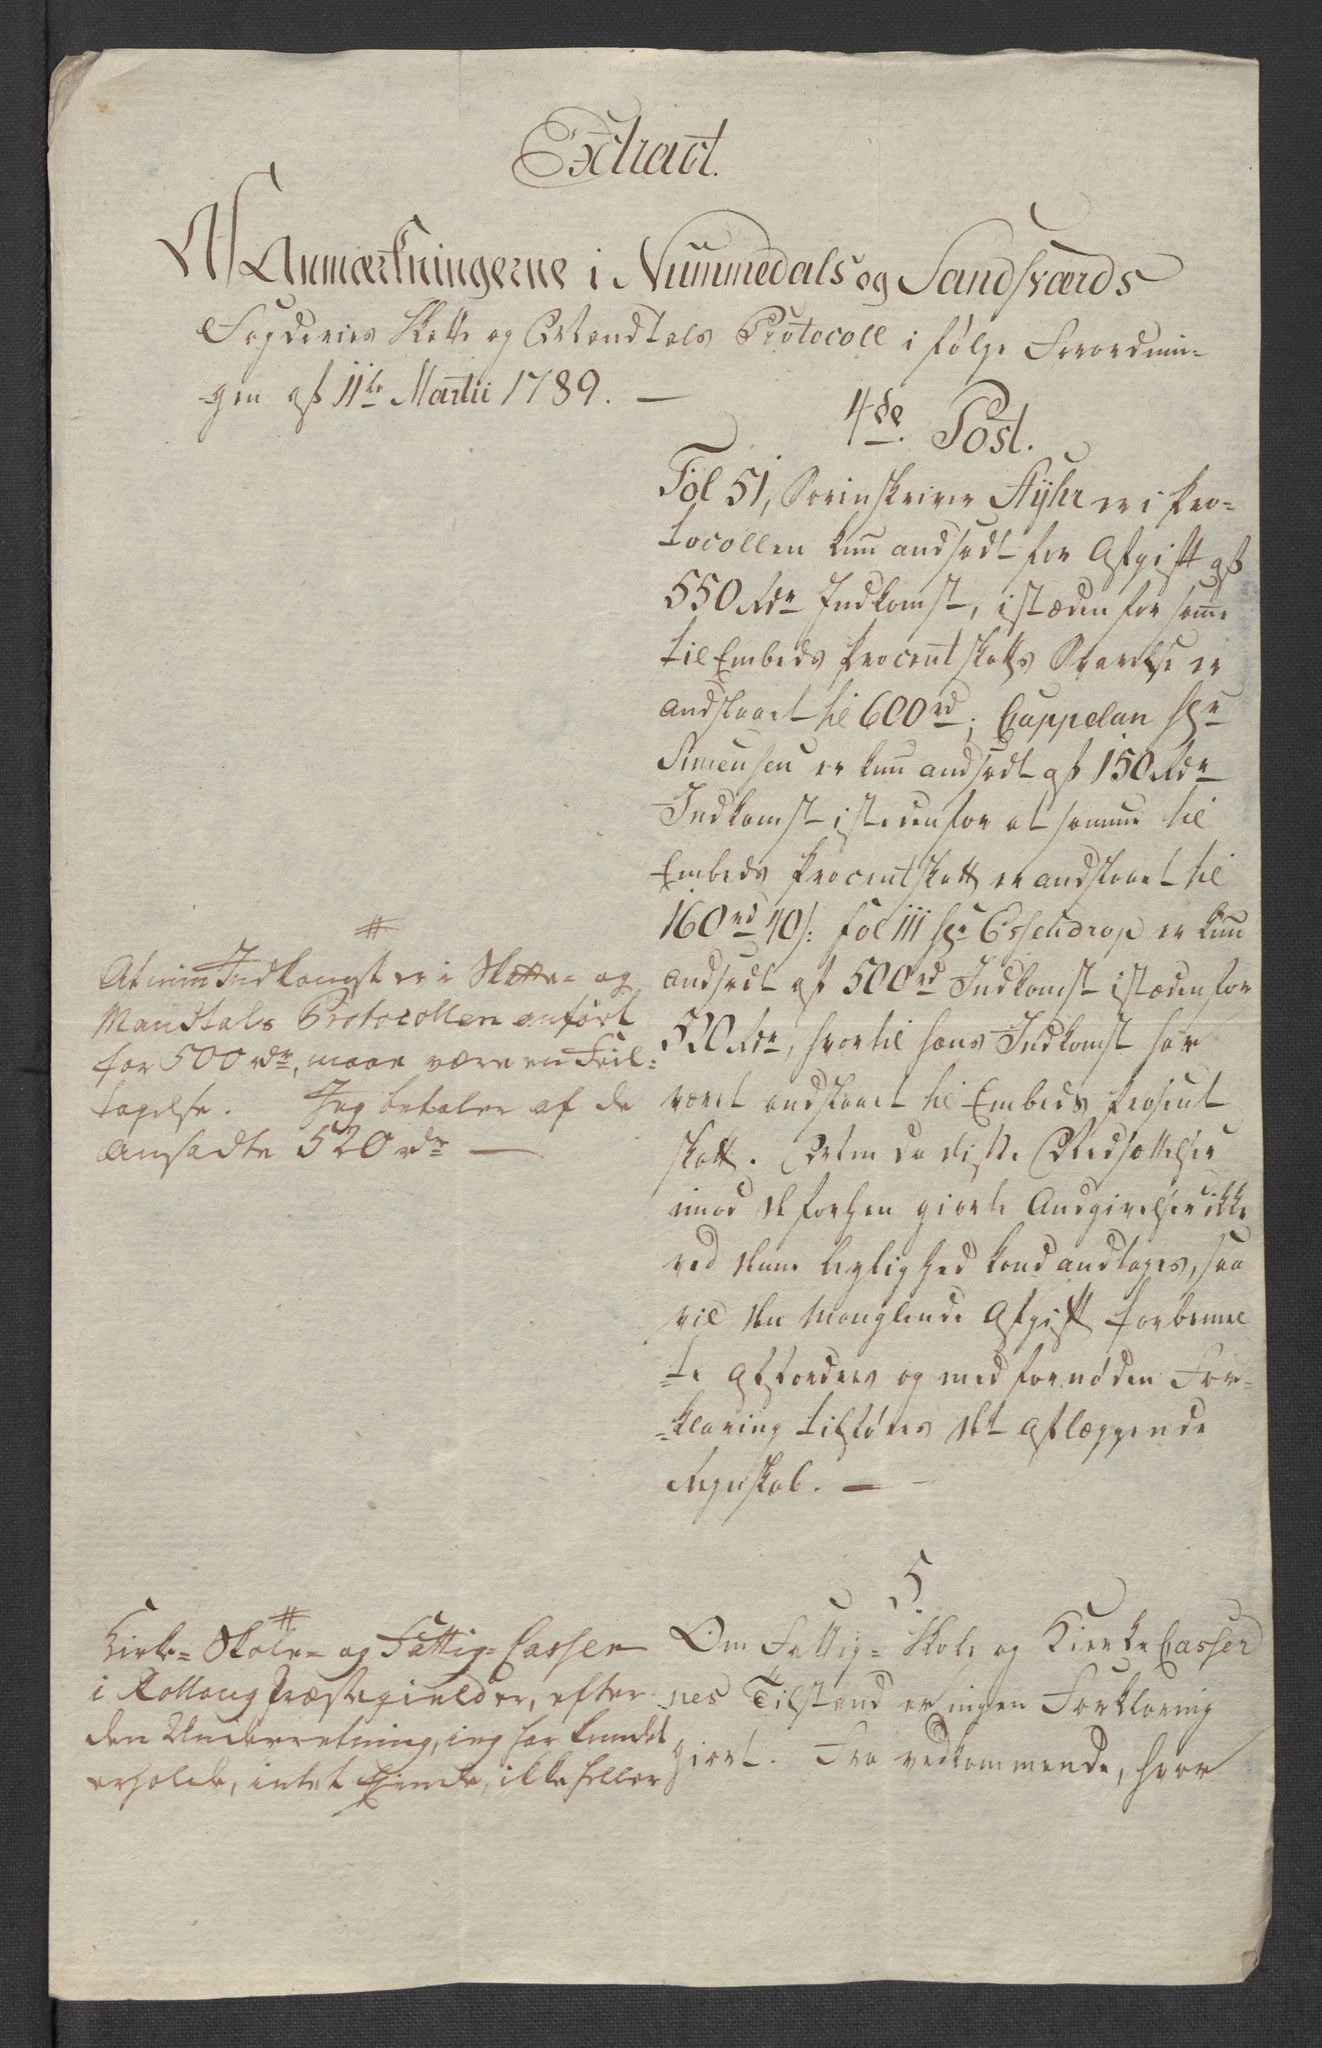 Extract.
Af Anmærkningerne i Nummedals og Sandsværds
Fogderies Skatte og Mandtals Protocoll i følge Forordnin-
gen af 11te Martii 1789. —
4de Post.
Fol 51, Sorinskriver Flyhr er i Pro-
tocollen kun andsadt for Afgift af
550 Rdr Indkomst, istæden for samme
til Embeds Procent Skatts Svarelse er
andslaaet til 600rd; Cappelan Hr
Simensen er kun andsadt af 150 Rdr
Indkomst isteden for at samme til
Embeds Procentskatt er andslaaet til
160rd 40s: fol 111 Hr Essendrop er kun
andsadt af 500rd Indkomst istæden for
520 Rdr, hvortil hans Indkomst har
været andslaaet til Embeds Prosent
Skatt. Men da disse Nedsættelser
imod de forhen giorte Andgivelser ikke
ved denne leylighed kand andtages, saa
vil den Manglende Afgift forbemel
-te affordres og med fornøden For-
-klaring tilføres det aflæggende
Regnskab. —
#
At min Indkomst er i Skatte- og
Mandtals Protocollen anført
for 500 rdr, maae være en Feil-
tagelse. Jeg betaler af de
ansadte 520 rdr —
5
Om Fattig- Skole og Kierke Casser
nes Tilstand er ingen Forklaring
giort. Fra vedkommende, hvor
#
Kirke- Skole- og Fattig-Casser
i Rollaug Præstegield er, efter
den Underretning, ieg har kundet
erholde, intet Eiende, ikke heller